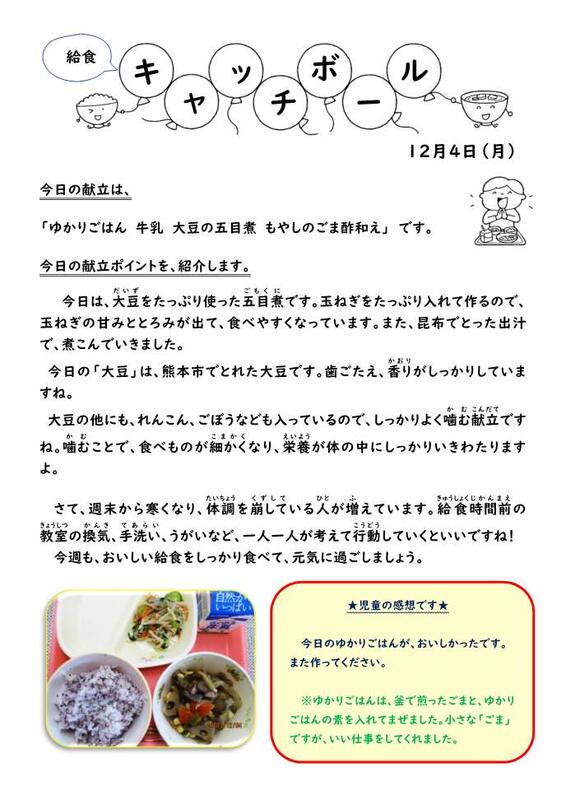 給食
キャッチボール
12月4日（月）
今日の献立は、
「ゆかりごはん 牛乳 大豆の五目煮 もやしのごま酢和え」 です。
今日の献立ポイントを、紹介します。
今日は、大豆をたっぷり使った五目煮です。玉ねぎをたっぷり入れて作るので、
玉ねぎの甘みととろみが出て、食べやすくなっています。また、昆布でとった出汁
で、煮こんでいきました。
今日の「大豆」は、熊本市でとれた大豆です。歯ごたえ、香りがしっかりしていま
すね。
大豆の他にも、れんこん、ごぼうなども入っているので、しっかりよく噛む献立です
ね。噛むことで、食べものが細かくなり、栄養が体の中にしっかりいきわたります
よ。
さて、週末から寒くなり、体調を崩している人が増えています。給食時間前の
教室の換気、手洗い、うがいなど、一人一人が考えて行動していくといいですね！
今週も、おいしい給食をしっかり食べて、元気に過ごしましょう。
自然が
いっぱい
★児童の感想です★
今日のゆかりごはんが、おいしかったです。
また作ってください。
※ゆかりごはんは、釜で煎ったごまと、ゆかり
ごはんの素を入れてまぜました。小さな「ごま」
ですが、いい仕事をしてくれました。